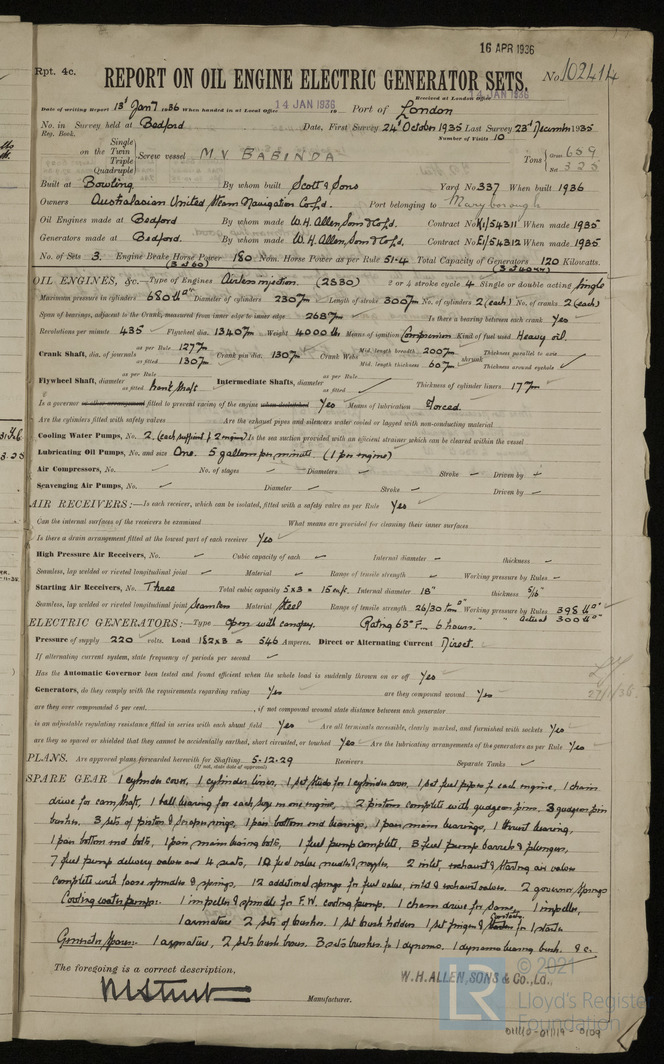 16 APR 1936
Rpt. 4c.
REPORT ON OIL ENGINE ELECTRIC GENERATOR SETS.
No 102414
Received at London Office 14 JAN 1936
Date of writing Report 13th Jan 1936 When handed in at Local Office 14 JAN 1936 Port of London
No. in Reg. Book. Survey held at Bedford Date, First Survey 24th October 1935 Last Survey 23rd December 1935
Number of Visits 10
on the Single Twin Triple Quadruple Screw vessel M V BABINDA Tons Gross 659 Net 325
Built at Bowling By whom built Scott & Sons Yard No 337 When built 1936
Owners Australasian United Steam Navigation Co Ld. Port belonging to Maryborough
Oil Engines made at Bedford By whom made W. H. Allen, Sons & Co Ld. Contract No K1/54311 When made 1935
Generators made at Bedford. By whom made W. H. Allen, Sons & Co Ld. Contract No E1/54312 When made 1935
No. of Sets 3. Engine Brake Horse Power 180 Nom. Horse Power as per Rule 51.4 Total Capacity of Generators 120 Kilowatts.
(3 at 60) (3 at 40 KW)
OIL ENGINES, &c.—Type of Engines Airless injection. (2S30) 2 or 4 stroke cycle 4 Single or double acting Single
Maximum pressure in cylinders 680 lb Diameter of cylinders 230 Length of stroke 300 No. of cylinders 2 (each) No. of cranks 2 (each)
Span of bearings, adjacent to the Crank, measured from inner edge to inner edge 268 Is there a bearing between each crank Yes
Revolutions per minute 435 Flywheel dia. 1340 Weight 4000 lbs Means of ignition Compression Kind of fuel used Heavy oil.
Crank Shaft, dia. of journals as per Rule 127 as fitted 130 Crank pin dia. 130 Crank Webs Mid. length breadth 200 Mid. length thickness 60 shrunk Thickness parallel to axis Thickness around eyehole
Flywheel Shaft, diameter as per Rule as fitted crank shaft Intermediate Shafts, diameter as per Rule as fitted Thickness of cylinder liners 17
Is a governor or other arrangement fitted to prevent racing of the engine when declutched Yes Means of lubrication Forced.
Are the cylinders fitted with safety valves Are the exhaust pipes and silencers water cooled or lagged with non-conducting material
Cooling Water Pumps, No. 2. (each sufficient for 2 engines) Is the sea suction provided with an efficient strainer which can be cleared within the vessel
Lubricating Oil Pumps, No. and size One. 5 gallons per minute (1 per engine)
Air Compressors, No. No. of stages Diameters Stroke Driven by
Scavenging Air Pumps, No. Diameter Stroke Driven by
AIR RECEIVERS:—Is each receiver, which can be isolated, fitted with a safety valve as per Rule Yes
Can the internal surfaces of the receivers be examined What means are provided for cleaning their inner surfaces
Is there a drain arrangement fitted at the lowest part of each receiver Yes
High Pressure Air Receivers, No. Cubic capacity of each Internal diameter thickness
Seamless, lap welded or riveted longitudinal joint Material Range of tensile strength Working pressure by Rules
Starting Air Receivers, No. Three Total cubic capacity 5 x 3 = 15 cu. ft. Internal diameter 18" thickness 5/16"
Seamless, lap welded or riveted longitudinal joint Seamless Material Steel Range of tensile strength 26/30 tons Working pressure by Rules 398 lb
Actual 300 lb
ELECTRIC GENERATORS:—Type Open with canopy. Rating 63° F — 6 hours
Pressure of supply 220 volts. Load 182 x 3 = 546 Amperes. Direct or Alternating Current Direct.
If alternating current system, state frequency of periods per second
Has the Automatic Governor been tested and found efficient when the whole load is suddenly thrown on or off Yes
Generators, do they comply with the requirements regarding rating Yes are they compound wound Yes
are they over compounded 5 per cent. , if not compound wound state distance between each generator
is an adjustable regulating resistance fitted in series with each shunt field Yes Are all terminals accessible, clearly marked, and furnished with sockets Yes
are they so spaced or shielded that they cannot be accidentally earthed, short circuited, or touched Yes Are the lubricating arrangements of the generators as per Rule Yes
PLANS. Are approved plans forwarded herewith for Shafting 5.12.29 Receivers Separate Tanks
(If not, state date of approval)
SPARE GEAR 1 cylinder cover, 1 cylinder liner, 1 set studs for 1 cylinder cover, 1 set fuel pipes for each engine, 1 chain
drive for cam shaft, 1 ball bearing for each size in one engine, 2 pistons complete with gudgeon pins, 3 gudgeon pin
bushes. 3 sets of piston & scraper rings, 1 pair bottom end bearings, 1 pair main bearings, 1 thrust bearing,
1 pair bottom end bolts, 1 pair main bearing bolts, 1 fuel pump complete, 3 fuel pump barrels & plungers,
7 fuel pump delivery valves and 4 seats, 12 fuel valve needles & nozzles, 2 inlet, exhaust & starting air valves
complete with loose spindles & springs, 12 additional springs for fuel valve, inlet & exhaust valves. 2 governor springs
Cooling water pumps:— 1 impeller & spindle for F.W. cooling pump. 1 chain drive for same, 1 impeller,
1 armature 2 sets of bushes. 1 set brush holders 1 set fingers & contacts for 1 starter
Generator spares:— 1 armature, 2 sets brush boxes. 3 sets brushes for 1 dynamo. 1 dynamo bearing bush. &c.
The foregoing is a correct description,
Manufacturer.
W. H. ALLEN, SONS & Co., Ld.
27/1/36.
© 2021
LR
Lloyd's Register
Foundation
011110-011119-0109